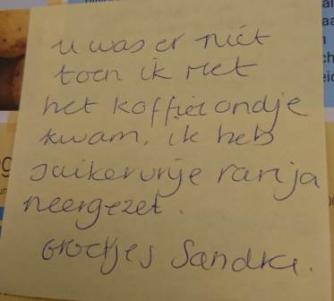 u was er niet
toen ik met
het koffierondje
kwam. ik heb
suikervrije ranja
neergezet.
Groetjes Sandra.